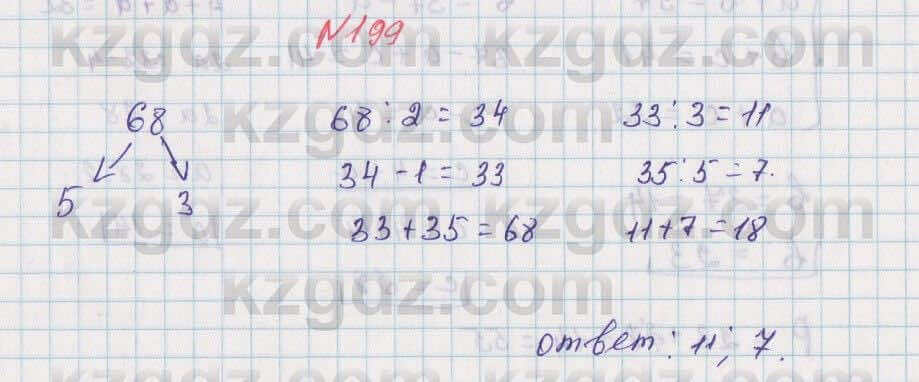 N199
68
5 3
68 : 2 = 34
34 - 1 = 33
33 + 35 = 68
33 : 3 = 11
35 : 5 = 7.
11 + 7 = 18
ответ: 11; 7.
kzgdz.com kzgdz.com
kzgdz.com kzgdz.com
kzgdz.com kzgdz.com
kzgdz.com